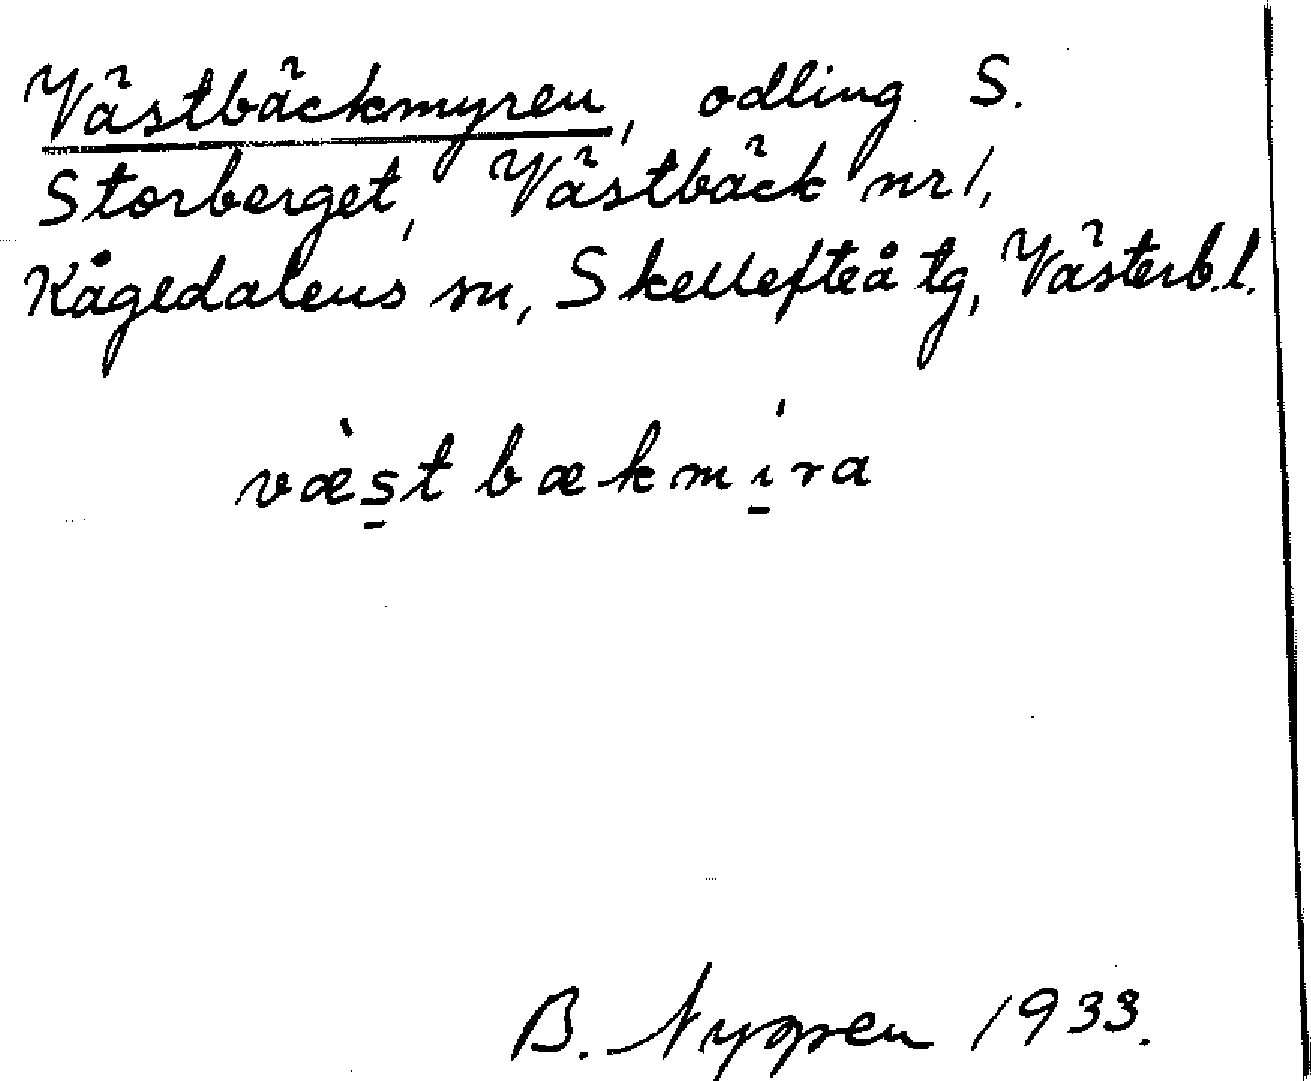 Västbäckmyren, odling S.
Storberget, Västbäck nr 1,
Kågedalens sn, Skellefteå tg, Västerb. l.
væ̀s̠t bækmi̠ŕa
B. Nygren 1933.